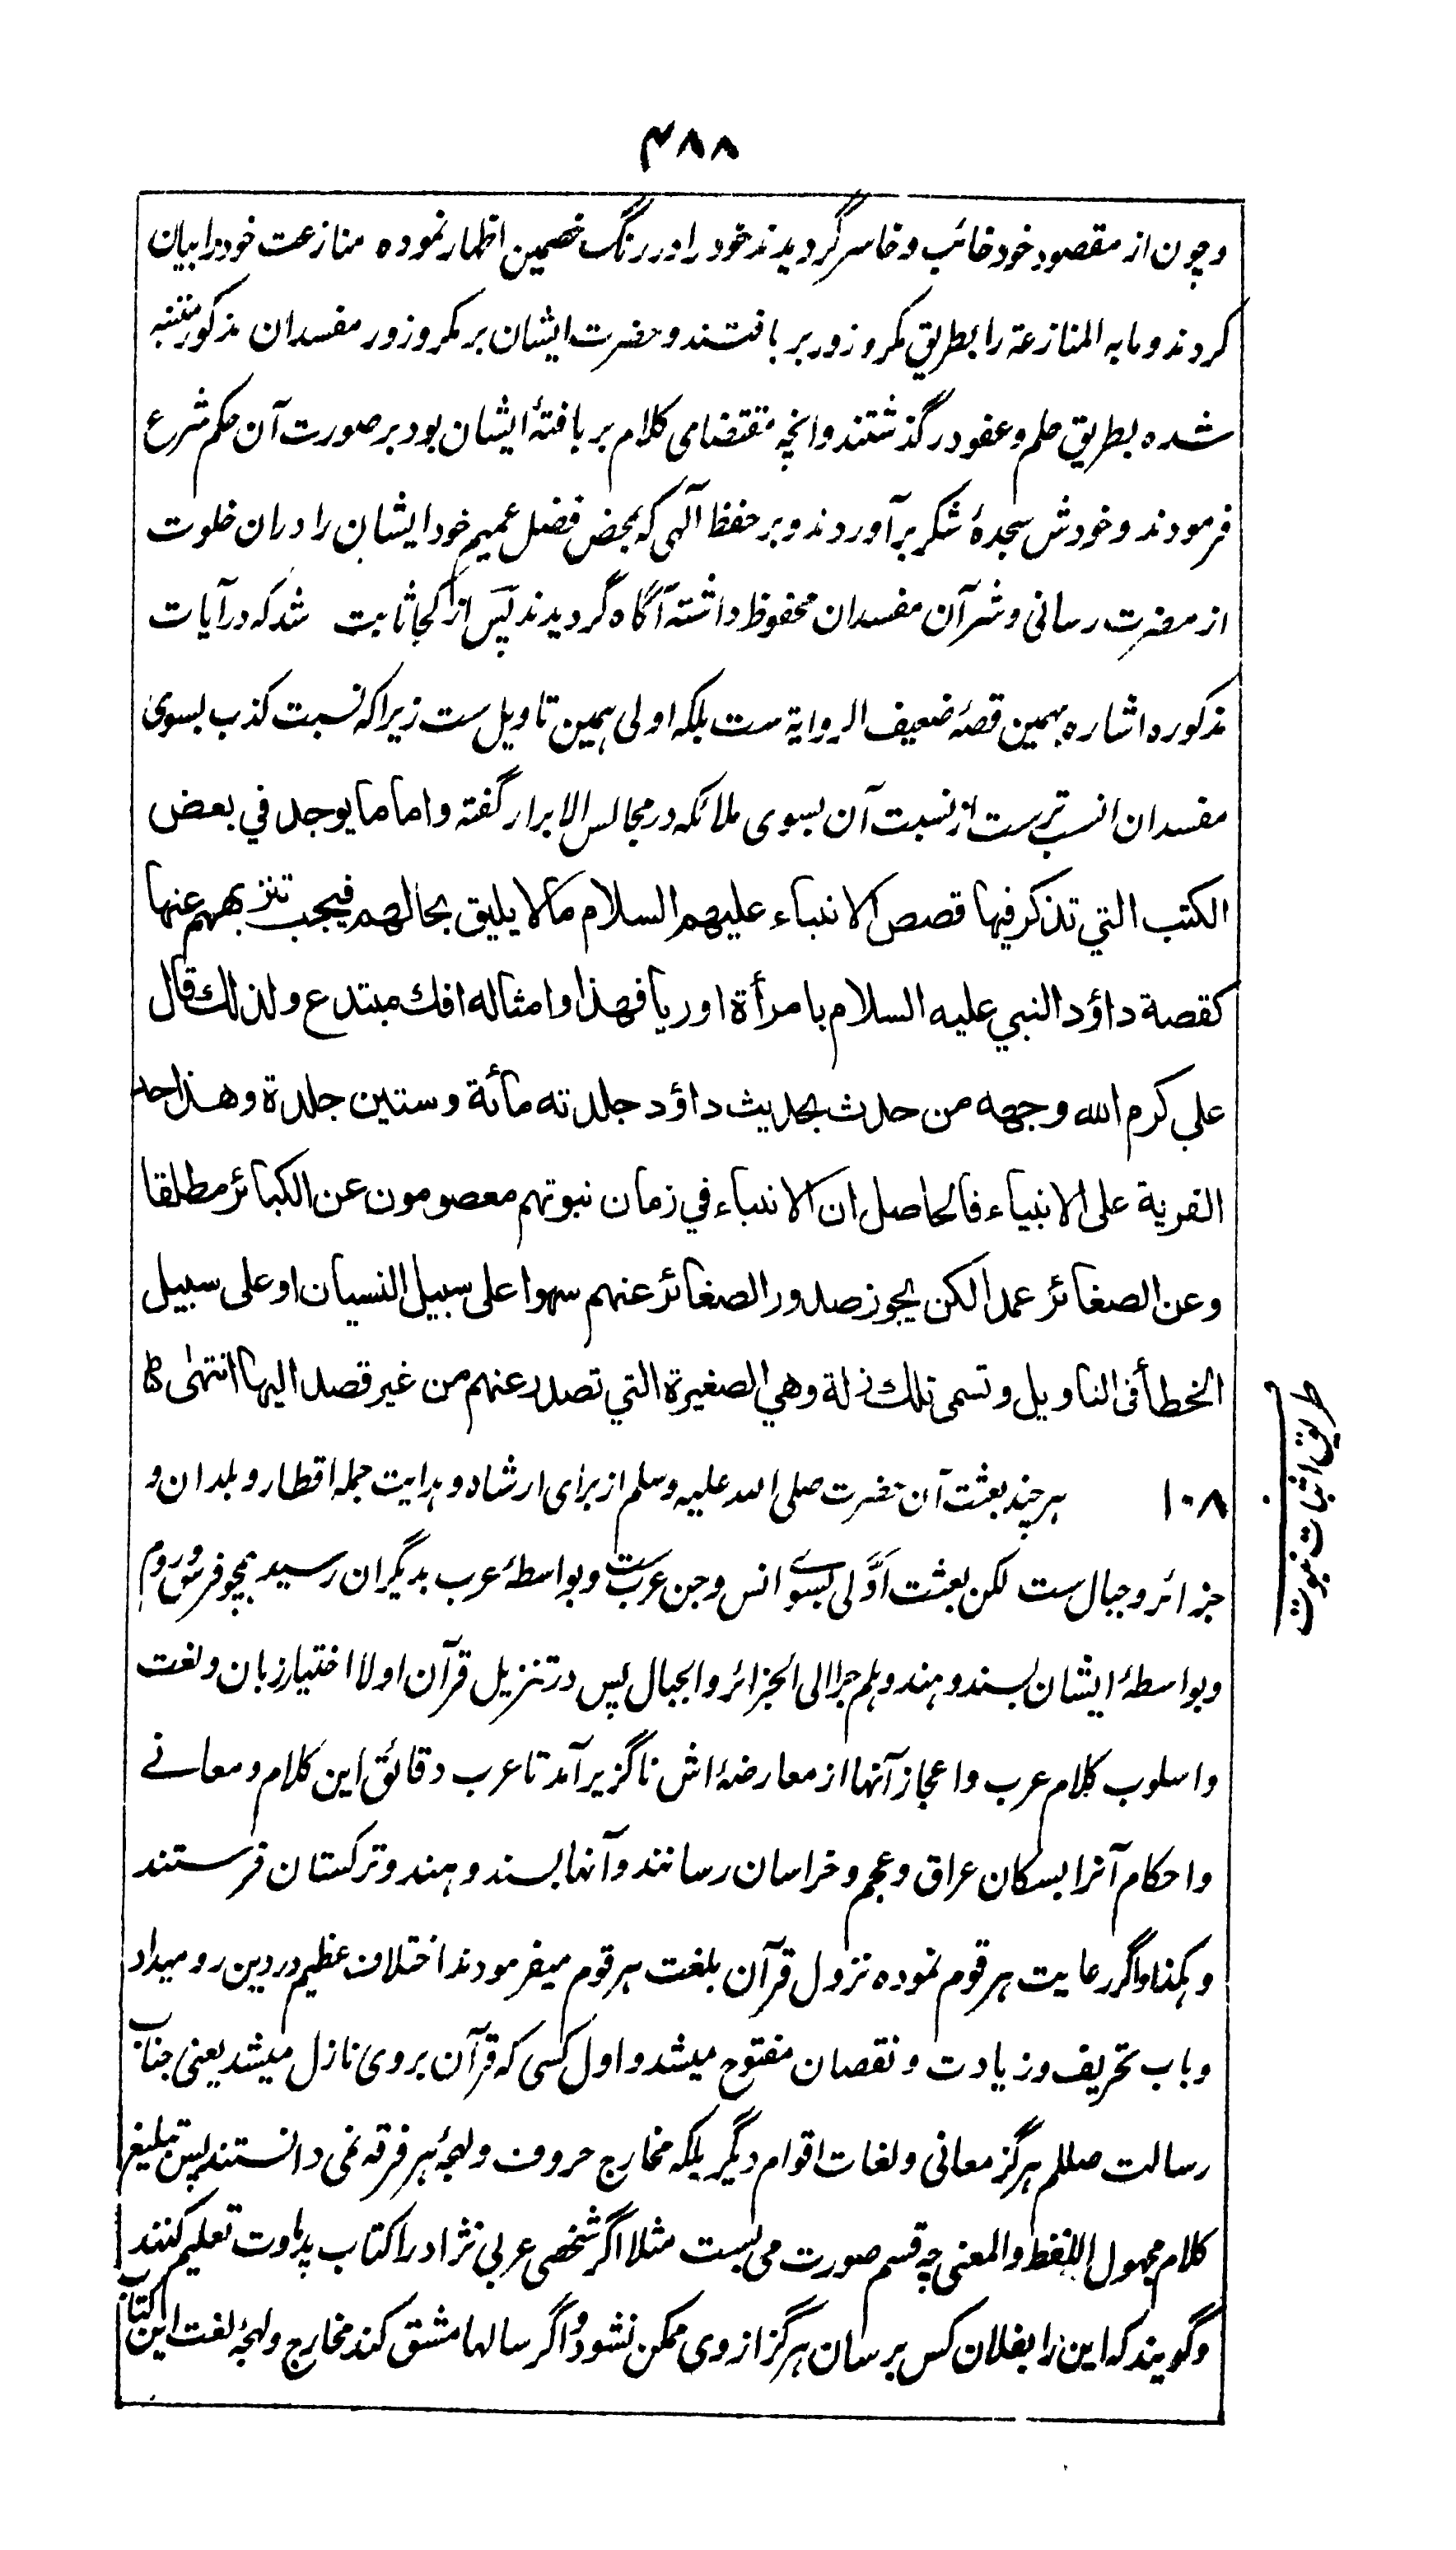 ۴۸۸
وچون از مقصود خود خائب و خاسر گردیدند خود را در رنگ خصمین اظهار نموده منازعت خود را بیان
کردند و مابه المنازعة را بطریق مکر و زور بر بافتند و حضرت ایشان بر مکر و زور مفسدان مذکور متنبه
شده بطریق حلم و عفو در گذشتند وانچه مقتضای کلام بر بافتۂ ایشان بود بر صورت آن حکم شرع
فرمودند و خودش سجدۂ شکر بر آوردند و بر حفظ آلهی که بمحض فضل عمیم خود ایشان را دران خلوت
از مضرت رسانی و شر آن مفسدان محفوظ داشته آگاه گردیدند پس از کجا ثابت شد که در آیات
مذکوره اشاره بهمین قصۂ ضعیف الروایة ست بلکه اولی همین تاویل ست زیرا که نسبت کذب بسوی
مفسدان انسب ترست از نسبت آن بسوی ملائکه در مجالس الابرار گفته واما ما یوجد في بعض
الکتب التي تذکر فیها قصص الانبیاء علیهم السلام مما لا یلیق بحالهم فیجب تنزیههم عنها
کقصة داؤد النبي علیه السلام بامرأة اوریا فهذا وامثاله افك مبتدع ولذلك قال
علي کرم الله وجهه من حدث بحدیث داؤد جلدته مأئة وستین جلدة وهذا حد
الفریة علی الانبیاء فالحاصل ان الانبیاء في زمان نبوتهم معصومون عن الکبائر مطلقا
وعن الصغائر عمدا لکن یجوز صدور الصغائر عنهم سهوا علی سبیل النسیان او علی سبیل
الخطأ فی التاویل وتسمی تلك زلة وهي الصغیرة التي تصدر عنهم من غیر قصد الیها انتهٰی
۱۰۸ هر چند بعثت آن حضرت صلی الله علیه وسلم از برای ارشاد و هدایت جمله اقطار و بلدان و
جزائر و جبال ست لکن بعثت اوّلی بسوے انس و جن عرب ست و بواسطۂ عرب بدیگران رسید همچو فرس و روم
و بواسطۂ ایشان بسند و هند و هلم جرا الی الجزائر والجبال پس در تنزیل قرآن اولا اختیار زبان و لغت
و اسلوب کلام عرب و اعجاز آنها از معارضۂ اش ناگزیر آمد تا عرب دقائق این کلام و معانے
و احکام آنرا بسکان عراق و عجم و خراسان رسانند و آنها بسند و هند و ترکستان فرستند
و هکذا و اگر رعایت هر قوم نموده نزول قرآن بلغت هر قوم میفرمودند اختلاف عظیم در دین رو میداد
و باب تحریف و زیادت و نقصان مفتوح میشد و اول کسی که قرآن بر وی نازل میشد یعنی جناب
رسالت صللم هرگز معانی و لغات اقوام دیگر بلکه مخارج حروف و لهجۂ هر فرقه نمی دانستند پس تبلیغ
کلام مجهول اللفظ والمعنی چه قسم صورت می بست مثلا اگر شخصی عربی نژاد را کتاب پدماوت تعلیم کنند
وگویند که این را بفلان کس برسان هرگز از وی ممکن نشود و اگر سالها مشق کند مخارج و لهجۂ لغت این کتاب
طریق اثبات نبوت